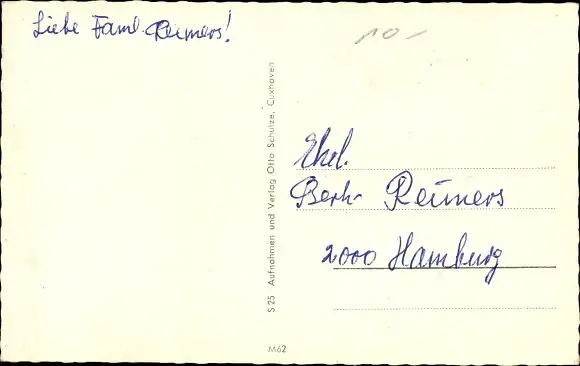 Liebe Faml. Reimers!
10.-
Ehel.
Berh. Reimers
2000 Hamburg
S 25 Aufnahmen und Verlag Otto Schulze, Cuxhaven
M62